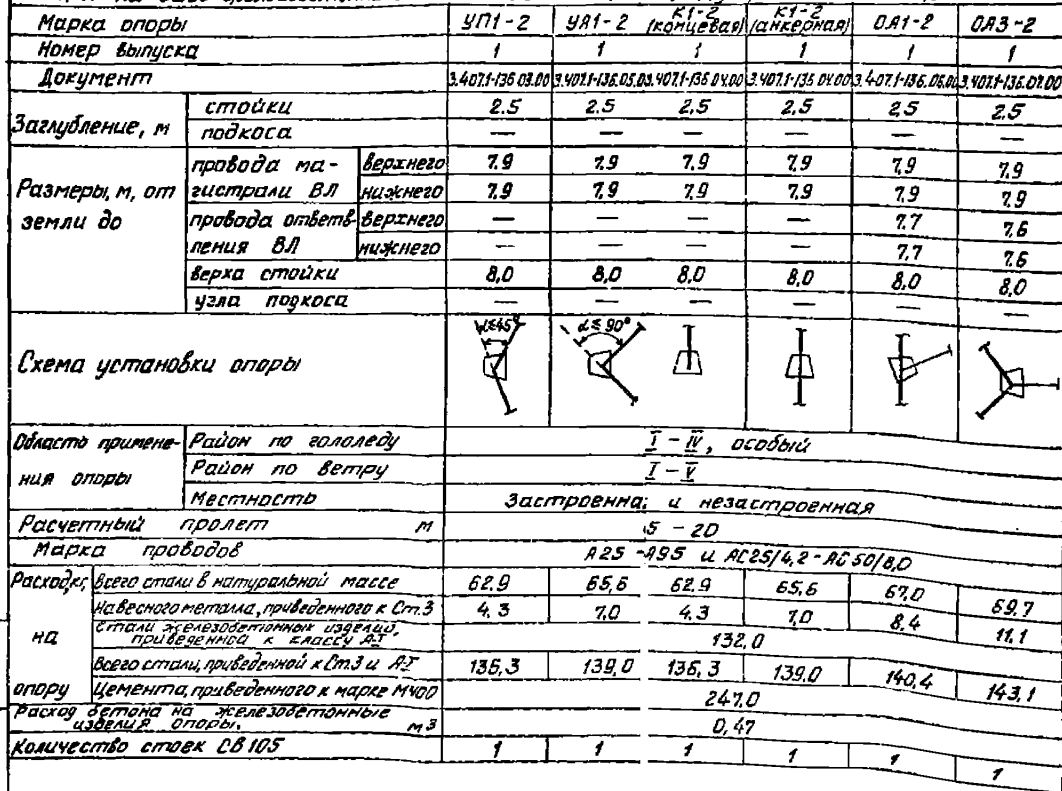 Марка опоры УП1-2 УА1-2 К1-2 (концевая) К1-2 (анкерная) ОА1-2 ОА3-2
Номер выпуска 1 1 1 1 1 1
Документ 3.407.1-136.03.00 3.407.1-136.05.0 3.407.1-136.04.00 3.407.1-136.04.00 3.407.1-136.06.00 3.407.1-136.07.00
Заглубление, м стойки 2.5 2.5 2.5 2.5 2,5 2,5
подкоса — — — — — —
Размеры, м, от земли до провода магистрали ВЛ верхнего 7.9 7.9 7.9 7.9 7.9 7.9
нижнего 7.9 7.9 7.9 7.9 7.9 7.9
провода ответвления ВЛ верхнего — — — — 7.7 7.6
нижнего — — — — 7.7 7.6
верха стойки 8,0 8,0 8,0 8,0 8,0 8,0
узла подкоса — — — — — —
Схема установки опоры α≤45° α≤90°
Область применения опоры Район по гололеду I - IV, особый
Район по ветру I - V
Местность Застроенна и незастроенная
Расчетный пролет м 5 - 20
Марка проводов А25 - А95 и АС25/4,2 - АС50/8,0
Расход, кг, на опору Всего стали в натуральной массе 62.9 65,6 62.9 65,6 67.0 69.7
Навесного металла, приведенного к Ст.3 4.3 7.0 4.3 7.0 8.4 11.1
Стали железобетонных изделий, приведенной к классу А-I 132.0
Всего стали, приведенной к Ст3 и А-I 136,3 139,0 136,3 139.0 140,4 143,1
Цемента, приведенного к марке М400 247.0
Расход бетона на железобетонные изделия опоры, м3 0,47
Количество стоек СВ105 1 1 1 1 1 1